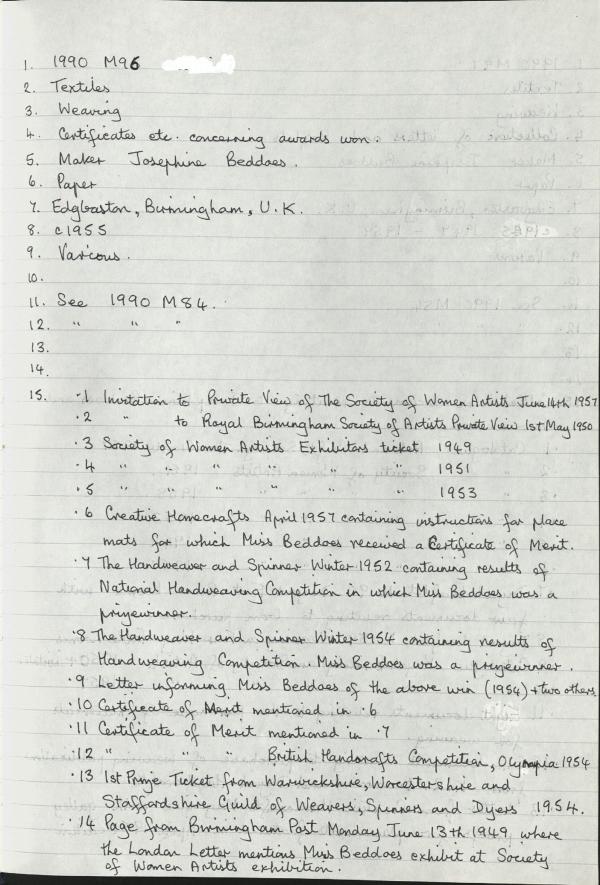 1. 1990 M96
2. Textiles
3. Weaving
4. Certificates etc. concerning awards won.
5. Maker Josephine Beddoes.
6. Paper
7. Edgbaston, Birmingham, U.K.
8. c1955
9. Various.
10.
11. See 1990 M84.
12. " " "
13.
14.
15. .1 Invitation to Private View of The Society of Women Artists June 14th 1957
.2 " to Royal Birmingham Society of Artists Private View 1st May 1950
.3 Society of Women Artists Exhibitors ticket 1949
.4 " " " " " " 1951
.5 " " " " " " 1953
.6 Creative Homecrafts April 1957 containing instructions for place
mats for which Miss Beddoes received a Certificate of Merit.
.7 The Handweaver and Spinner Winter 1952 containing results of
National Handweaving Competition in which Miss Beddoes was a
prizewinner.
.8 The Handweaver and Spinner Winter 1954 containing results of
Handweaving Competition Miss Beddoes was a prizewinner.
.9 Letter informing Miss Beddoes of the above win (1954) + two others
.10 Certificate of Merit mentioned in .6
.11 Certificate of Merit mentioned in .7
.12 " " " British Handcrafts Competition, Olympia 1954
.13 1st Prize Ticket from Warwickshire, Worcestershire and
Staffordshire Guild of Weavers, Spinners and Dyers 1954.
.14 Page from Birmingham Post Monday June 13th 1949 where
the London Letter mentions Miss Beddoes exhibit at Society
of Women Artists exhibition.